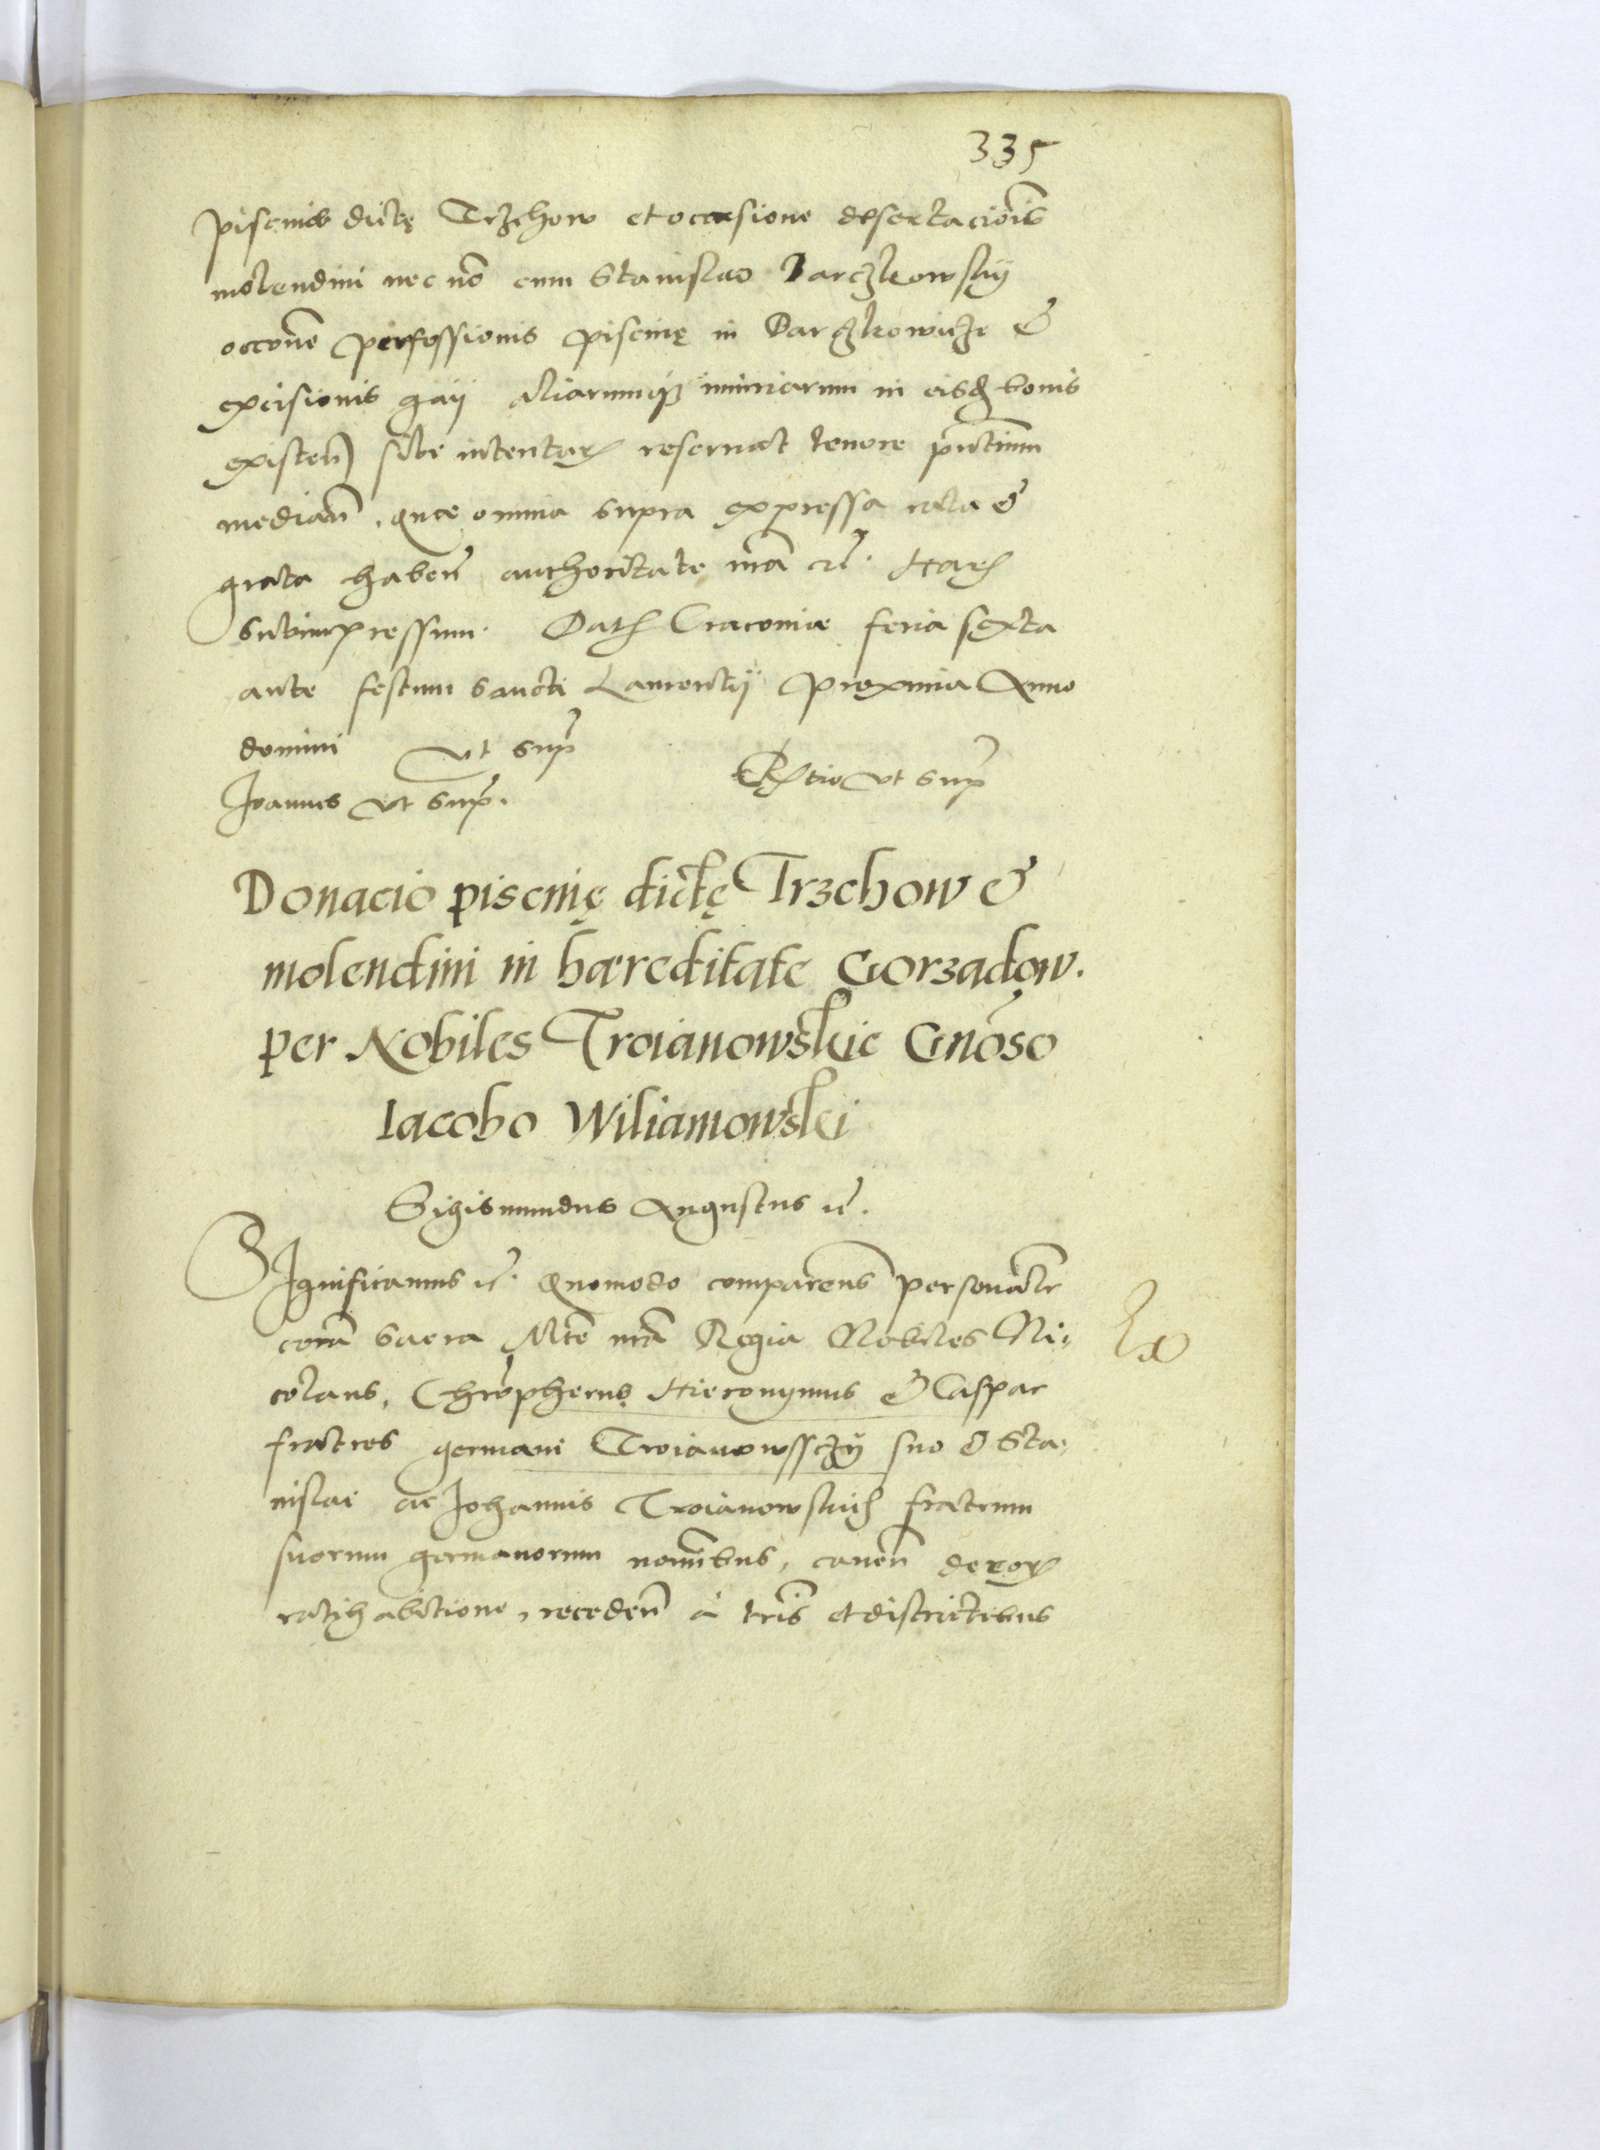 335
piscinae dictę Trzchow et occasione desertacionis
molendini nec nō cum Stanislao Barczkowsky
occone perfossionis piscinę in Barczkowicze &
excisionis gaii aliarumq iniuriarum in eisd bonis
existen sibi intentar reservat tenore pntium
median. quae omnia supra expressa rata &
grata haben authoritate nra etc. Har
subimpressum. Dat Cracoviae feria sexta
ante festum Sancti Laurentij proxima Anno
domini ut supr
Joannes ut supr. Rtio ut supr
Donacio piscinę dictę Trzchow &
molendini in hæreditate Gorzadow.
per Nobiles Troianowskie Gnōso
Iacobo Wiliamowski
Sigismundus Augustus etc.
Significamus etc. Quomodo comparens personalr
corā Sacra Mte nrā Regia Nobiles Ni:
colaus, Chrophorus Hieronymus & Caspar
fratres germani Troianowssczy suo & Sta:
nislai ac Johannis Troianowskich fratrum
suorum germanorum nominibus, caven de eor
ratihabitione, receden à tris et districtibus